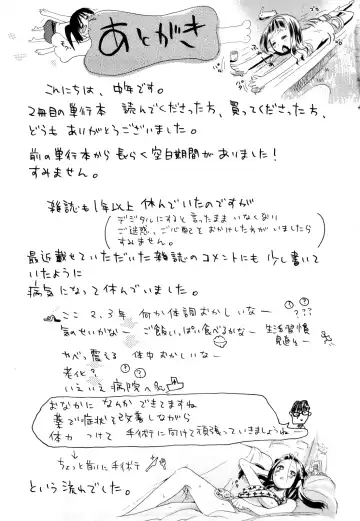 あとがき
こんにちは、中年です。
2冊目の単行本 読んでくださった方、買ってくださった方、
どうもありがとうございました。
前の単行本から長らく空白期間がありました!
すみません。
雑誌も1年以上休んでいたのですが
デジタルにすると言ったままいなくなり
ご迷惑、ご心配をおかけした方がいましたら
すみません。
最近載せていただいた雑誌のコメントにも少し書いて
いたように
病気になって休んでいました。
ここ2,3年 何か体調おかしいなー
???
気のせいかなー ご飯いっぱい食べるかなー 生活習慣
見直しー
やべっ震える 体中おかしいなー
老化?
いえいえ病院へGO
おなかになんかできてますね
薬で症状を改善しながら
体力つけて手術に向けて頑張っていきましょうね
ちょっと前に手術
という流れでした。